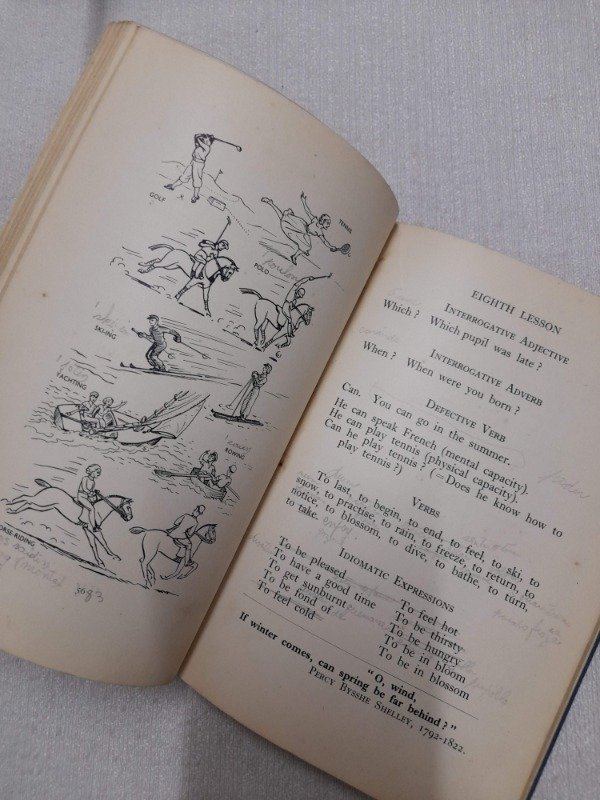 GOLF
TENNIS
POLO
SKI-ING
YACHTING
ROWING
HORSE-RIDING
EIGHTH LESSON
INTERROGATIVE ADJECTIVE
Which? Which pupil was late?
INTERROGATIVE ADVERB
When? When were you born?
DEFECTIVE VERB
Can. You can go in the summer.
He can speak French (mental capacity).
He can play tennis (physical capacity).
Can he play tennis? (=Does he know how to
play tennis?)
poder
VERBS
To last, to begin, to end, to feel, to ski, to
snow, to practise, to rain, to freeze, to return, to
notice, to blossom, to dive, to bathe, to turn,
to take.
IDIOMATIC EXPRESSIONS
To be pleased To feel hot
To have a good time To be thirsty
To get sunburnt To be hungry
To be fond of To be in bloom
To feel cold To be in blossom
"O, wind,
If winter comes, can spring be far behind?"
PERCY BYSSHE SHELLEY, 1792-1822.